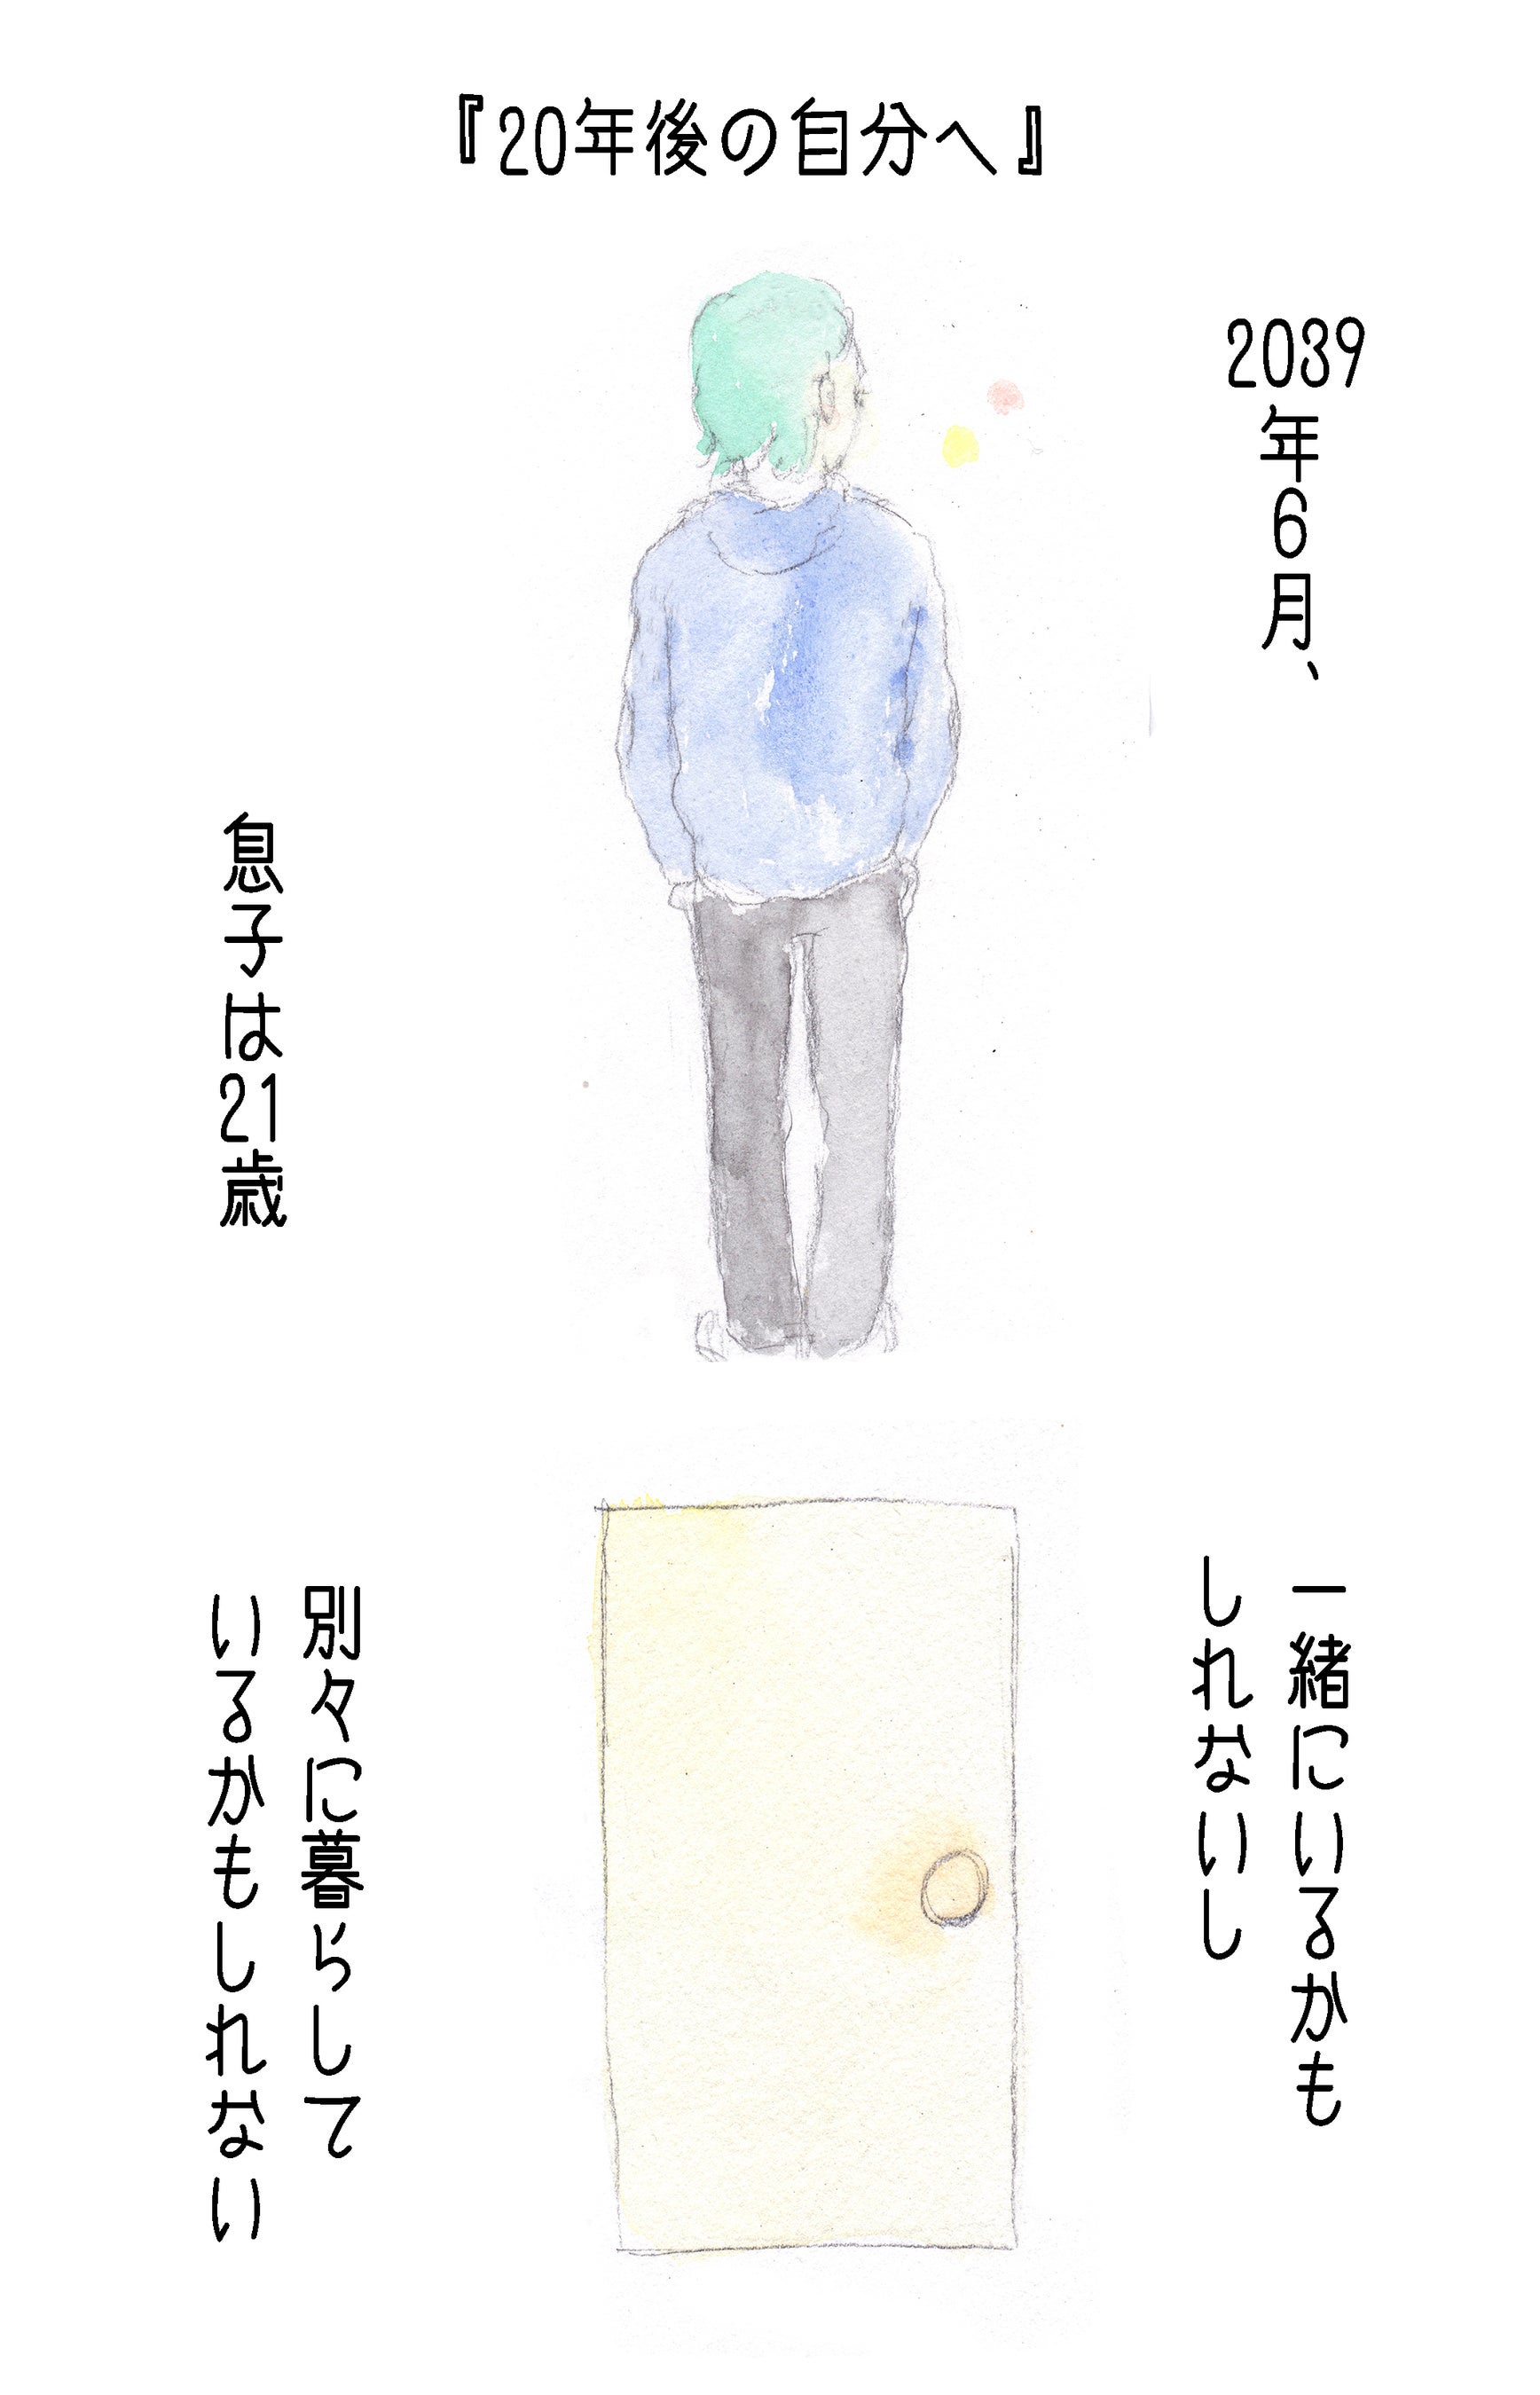 『20年後の自分へ』
2039年6月、
息子は21歳
一緒にいるかも
しれないし
別々に暮らして
いるかもしれない